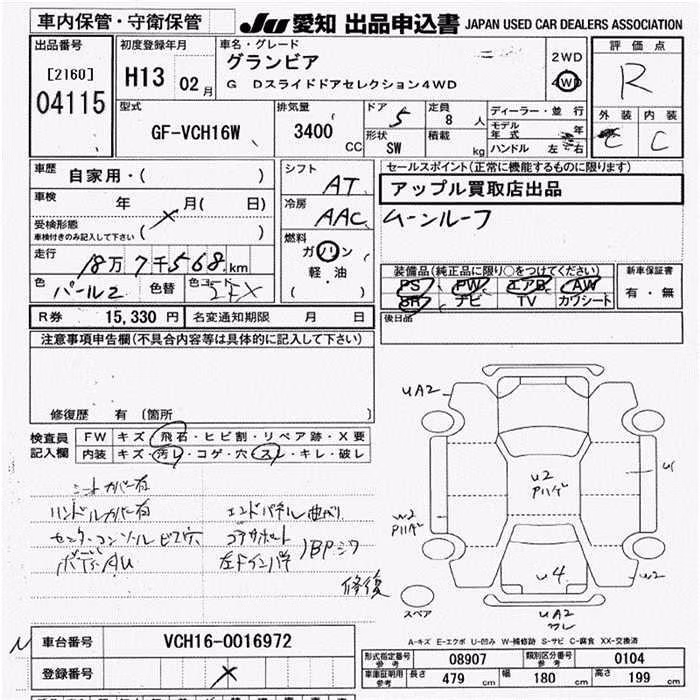 車内保管・守衛保管
JU 愛知 出品申込書 JAPAN USED CAR DEALERS ASSOCIATION
出品番号
[2160]
04115
初度登録年月
H13 02月
車名・グレード
グランビア
G Dスライドドアセレクション4WD
2WD
4WD
評価点
R
外装 内装
C C
型式
GF-VCH16W
排気量
3400 CC
ドア 5
形状 SW
定員 8 人
積載 kg
ディーラー・並行
モデル年式 年
ハンドル 左・右
車歴 自家用・( )
車検 年 月( 日)
受検形態
車検付きのみ記入して下さい ( )
走行
18万7千568km
色 パール2 色替 色コード 2FX
シフト AT
冷房 AAC
燃料
ガソリン
軽・油
( )
セールスポイント(正常に機能するものに限ります)
アップル買取店出品
ムーンルーフ
装備品(純正品に限り○をつけてください)
PS PW エアB AW
SR ナビ TV カワシート
新車保証書
有・無
R券 15,330円 名変通知期限 月 日
後日品
注意事項申告欄(不具合内容等は具体的に記入して下さい)
修復歴 有 (箇所 )
検査員 FW キズ・飛石・ヒビ割・リペア跡・X要
記入欄 内装 キズ・汚レ・コゲ・穴・スレ・キレ・破レ
シートカバー有
ハンドルカバー有 エンドパネル曲がり
センターコンソールビス穴 コアサポート
ボディAU 左ドインパネ
BPシワ
修復
UA2
U2
Pハゲ
U1
W2
Pハゲ
U4
W2
UA2
ワレ
スペア
A-キズ E-エクボ U-凹み W-補修跡 S-サビ C-腐食 XX-交換済
車台番号 VCH16-0016972
登録番号
型式指定番号 参考 08907 類別区分番号 参考 0104
車庫証明用 参考 長さ 479 cm 幅 180 cm 高さ 199 cm